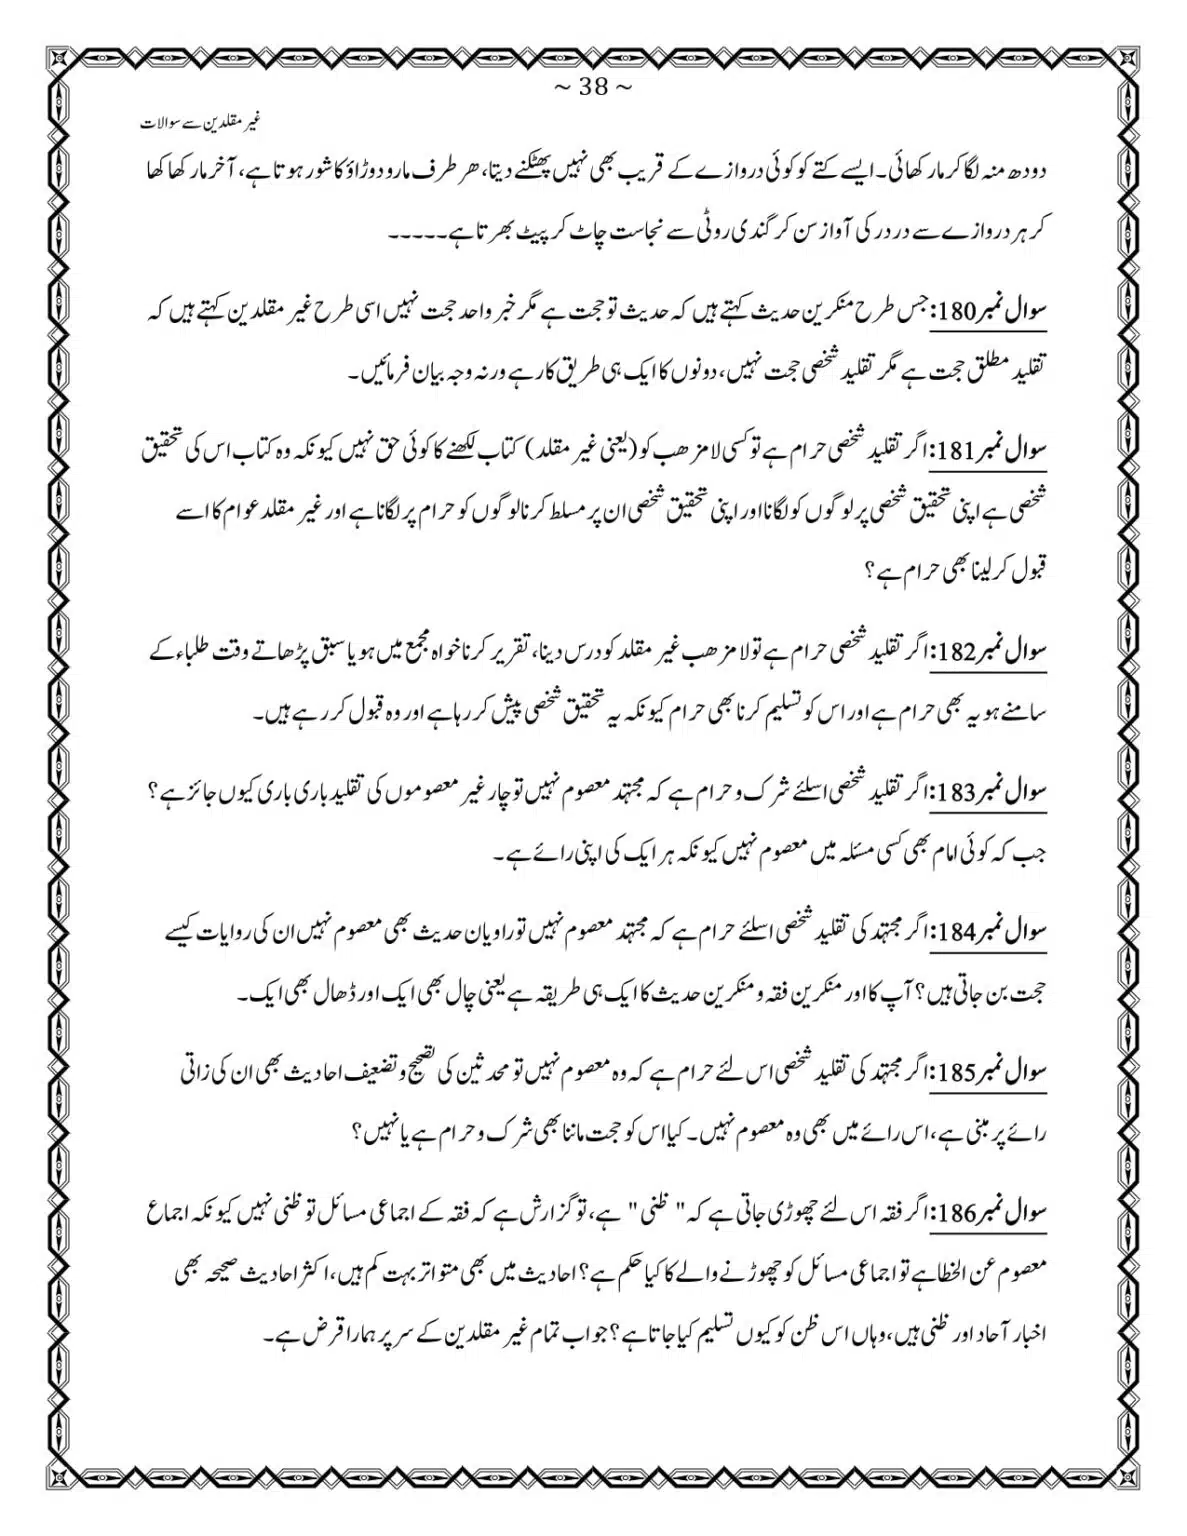 ~ 38 ~
غیر مقلدین سے سوالات
دودھ منہ لگا کر مار کھائی۔ ایسے کتے کو کوئی دروازے کے قریب بھی نہیں پھٹکنے دیتا، ھر طرف مارو دوڑاؤ کا شور ہوتا ہے، آخر مار کھا کھا
کر ہر دروازے سے در در کی آواز سن کر گندی روٹی سے نجاست چاٹ کر پیٹ بھرتا ہے۔۔۔۔۔
سوال نمبر 180: جس طرح منکرین حدیث کہتے ہیں کہ حدیث تو حجت ہے مگر خبر واحد حجت نہیں اسی طرح غیر مقلدین کہتے ہیں کہ
تقلید مطلق حجت ہے مگر تقلید شخصی حجت نہیں، دونوں کا ایک ہی طریق کار ہے ورنہ وجہ بیان فرمائیں۔
سوال نمبر 181: اگر تقلید شخصی حرام ہے تو کسی لامزھب کو (یعنی غیر مقلد) کتاب لکھنے کا کوئی حق نہیں کیونکہ وہ کتاب اس کی تحقیق
شخصی ہے اپنی تحقیق شخصی پر لوگوں کو لگانا اور اپنی تحقیق شخصی ان پر مسلط کرنا لوگوں کو حرام پر لگانا ہے اور غیر مقلد عوام کا اسے
قبول کر لینا بھی حرام ہے؟
سوال نمبر 182: اگر تقلید شخصی حرام ہے تو لامزھب غیر مقلد کو درس دینا، تقریر کرنا خواہ مجمع میں ہو یا سبق پڑھاتے وقت طلباء کے
سامنے ہو یہ بھی حرام ہے اور اس کو تسلیم کرنا بھی حرام کیونکہ یہ تحقیق شخصی پیش کر رہا ہے اور وہ قبول کر رہے ہیں۔
سوال نمبر 183: اگر تقلید شخصی اسلئے شرک و حرام ہے کہ مجتہد معصوم نہیں تو چار غیر معصوموں کی تقلید باری باری کیوں جائز ہے؟
جب کہ کوئی امام بھی کسی مسئلہ میں معصوم نہیں کیونکہ ہر ایک کی اپنی رائے ہے۔
سوال نمبر 184: اگر مجتہد کی تقلید شخصی اسلئے حرام ہے کہ مجتہد معصوم نہیں تو راویان حدیث بھی معصوم نہیں ان کی روایات کیسے
حجت بن جاتی ہیں؟ آپ کا اور منکرین فقہ و منکرین حدیث کا ایک ہی طریقہ ہے یعنی چال بھی ایک اور ڈھال بھی ایک۔
سوال نمبر 185: اگر مجتہد کی تقلید شخصی اس لئے حرام ہے کہ وہ معصوم نہیں تو محدثین کی تصحیح و تضعیف احادیث بھی ان کی زاتی
رائے پر مبنی ہے، اس رائے میں بھی وہ معصوم نہیں۔ کیا اس کو حجت ماننا بھی شرک و حرام ہے یا نہیں؟
سوال نمبر 186: اگر فقہ اس لئے چھوڑی جاتی ہے کہ " ظنی " ہے، تو گزارش ہے کہ فقہ کے اجماعی مسائل تو ظنی نہیں کیونکہ اجماع
معصوم عن الخطا ہے تو اجماعی مسائل کو چھوڑنے والے کا کیا حکم ہے؟ احادیث میں بھی متواتر بہت کم ہیں، اکثر احادیث صحیحہ بھی
اخبار آحاد اور ظنی ہیں، وہاں اس ظن کو کیوں تسلیم کیا جاتا ہے؟ جواب تمام غیر مقلدین کے سر پر ہمارا قرض ہے۔